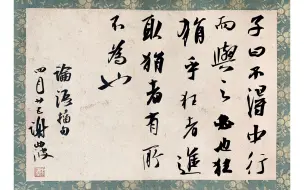 子曰不得中行
而與之必也狂
狷乎狂者進
取狷者有所
不為也
論語摘句
四月廿三謝